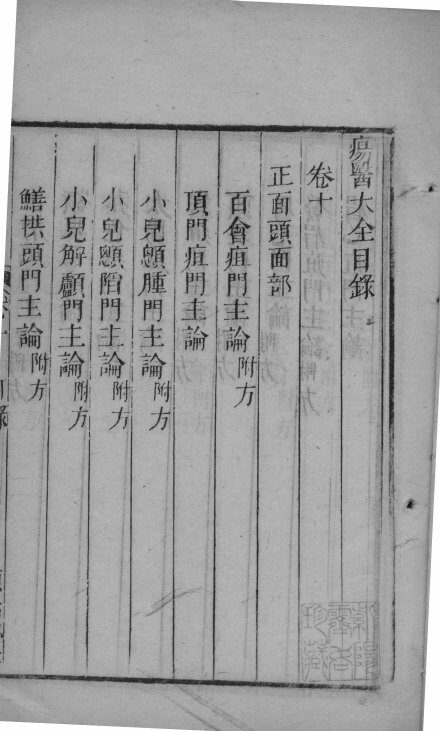 瘍醫大全目錄
卷十
正面頭面部
百會疽門主論附方
頂門疽門主論
小兒顖腫門主論附方
小兒顖陷門主論附方
小兒解顱門主論附方
鱔拱頭門主論附方